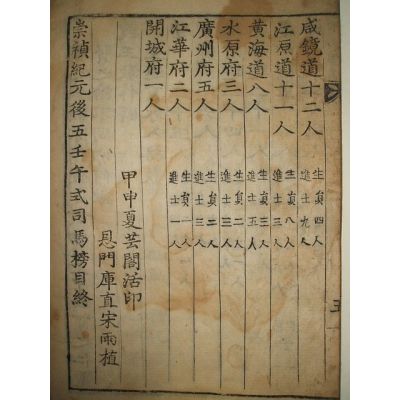 咸鏡道十二人
生員四人
進士九人
江原道十一人
生員八人
進士三人
黃海道八人
生員三人
進士五人
水原府三人
生員二人
廣州府五人
生員二人
進士三人
江華府二人
生員一人
進士一人
開城府一人
甲申夏芸閣活印
恩門庫直宋雨植
崇禎紀元後五壬午式司馬榜目終